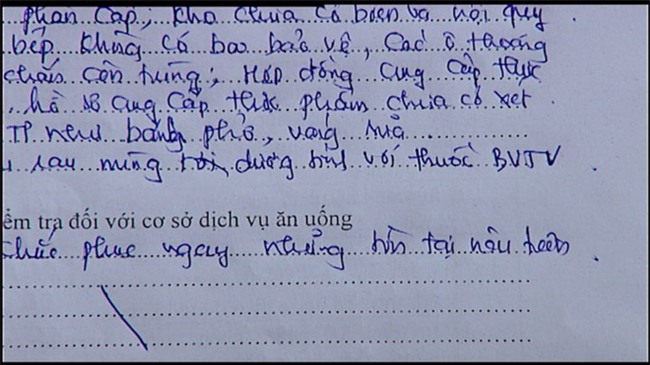 phân cấp; kho chưa có biển và nội quy
bếp không có bao bảo vệ, các ô thoáng
chắn côn trùng; Hợp đồng cung cấp thực
hồ sơ cung cấp thực phẩm chưa có xét
TP như bánh phở,
sau muống dương tính với thuốc BVTV
ểm tra đối với cơ sở dịch vụ ăn uống
phục ngay những tồn tại nêu trên.